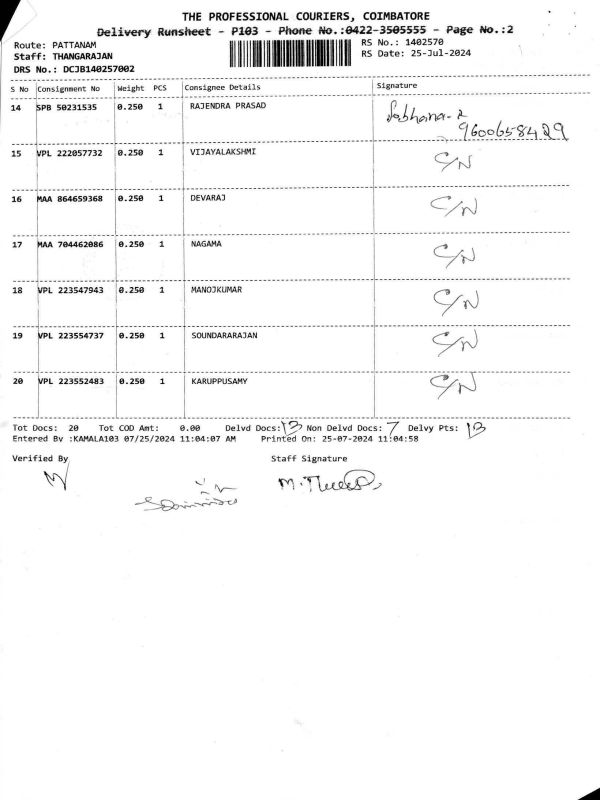 THE PROFESSIONAL COURIERS, COIMBATORE
Delivery Runsheet - P103 - Phone No.:0422-3505555 - Page No.:2
Route: PATTANAM RS No.: 1402570
Staff: THANGARAJAN RS Date: 25-Jul-2024
DRS No.: DCJB140257002
S No Consignment No Weight PCS Consignee Details Signature
14 SPB 50231535 0.250 1 RAJENDRA PRASAD
9600658429
15 VPL 222057732 0.250 1 VIJAYALAKSHMI C/N
16 MAA 864659368 0.250 1 DEVARAJ C/N
17 MAA 704462086 0.250 1 NAGAMA C/N
18 VPL 223547943 0.250 1 MANOJKUMAR C/N
19 VPL 223554737 0.250 1 SOUNDARARAJAN C/N
20 VPL 223552483 0.250 1 KARUPPUSAMY C/N
Tot Docs: 20 Tot COD Amt: 0.00 Delvd Docs: 13 Non Delvd Docs: 7 Delvy Pts: 13
Entered By :KAMALA103 07/25/2024 11:04:07 AM Printed On: 25-07-2024 11:04:58
Verified By Staff Signature